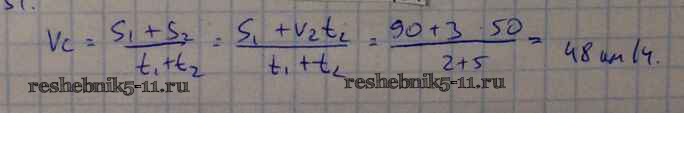 Vc = (S₁ + S₂)/(t₁ + t₂) = (S₁ + v₂t₂)/(t₁ + t₂) = (90 + 3 · 50)/(2 + 5) = 48 км/ч.
reshebnik5-11.ru reshebnik5-11.ru